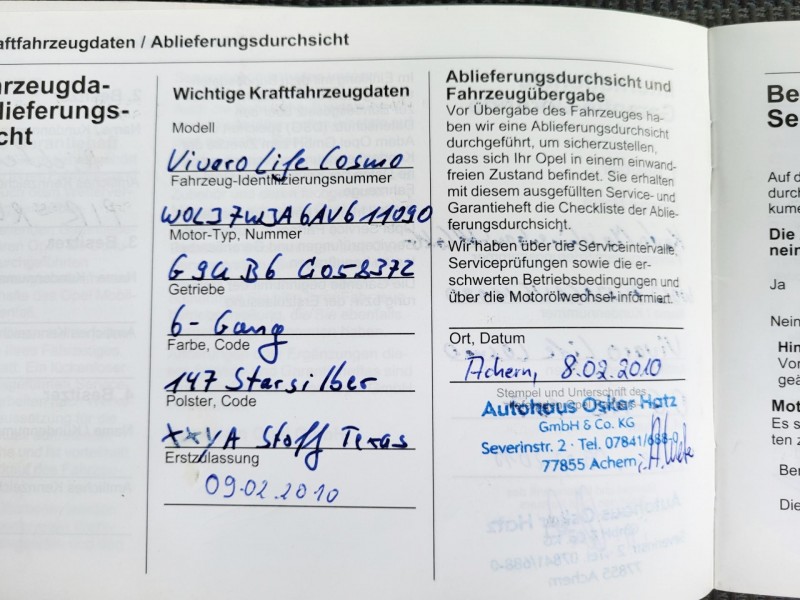 aftfahrzeugdaten / Ablieferungsdurchsicht
hrzeugda-
lieferungs-
icht
Wichtige Kraftfahrzeugdaten
Modell
Vivaro Life Cosmo
Fahrzeug-Identifizierungsnummer
W0L37W3A6AV611090
Motor-Typ, Nummer
G9U B6 C058372
Getriebe
6-Gang
Farbe, Code
147 Starsilber
Polster, Code
XXYA Stoff Texas
Erstzulassung
09.02.2010
Ablieferungsdurchsicht und
Fahrzeugübergabe
Vor Übergabe des Fahrzeuges ha-
ben wir eine Ablieferungsdurchsicht
durchgeführt, um sicherzustellen,
dass sich Ihr Opel in einem einwand-
freien Zustand befindet. Sie erhalten
mit diesem ausgefüllten Service- und
Garantieheft die Checkliste der Ablie-
ferungsdurchsicht.
Wir haben über die Serviceintervalle,
Serviceprüfungen sowie die er-
schwerten Betriebsbedingungen und
über die Motorölwechsel informiert.
Ort, Datum
Achern, 8.02.2010
Stempel und Unterschrift des
Autohaus Oskar Hatz
GmbH & Co. KG
Severinstr. 2 · Tel. 07841/688-0
77855 Achern
Be
Se
Auf d
durch
kume
Die
nein
Ja
Nein
Hin
Vor
geä
Mot
Es s
ten z
Ber
Die